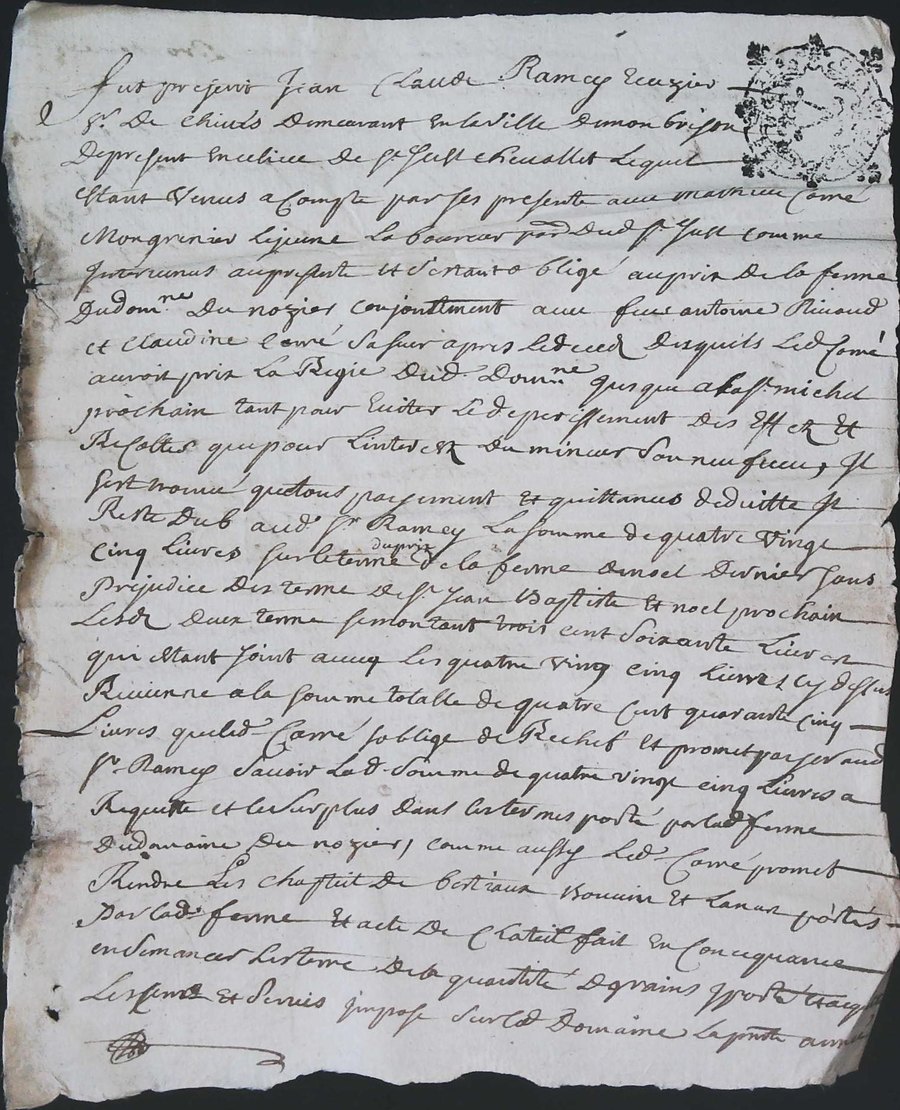 fut present Jean Claude Ramey Ecuzier
Sr. De chivés Demeurant En la ville De mon brison
De present En ce lieu De St Just chevallet Lequel
Estant Venus a Compte par ses presente avec Mathieu Corré
Mongrenier Le jeune Laboureur Dud St Just comme
Intervenus au presente et s'estant obligé au prix De la ferme
Dudomne Du nozier conjointement avec feu antoine Rivaud
et Claudine Corré Sa sœur apres Le deced Desquels Led Corré
auroit prix La Regie Dud. Domne jusque a la St michel
prochain tant pour Eviter Le deperissement Des Effet Et
Recoltes que pour Linterest Du mineur Son neufveu, Il
sest trouvé que tous payement Et quittances Deduitte Il
Reste Dub aud Sr Ramey La somme de quatre Vingt
cinq Livres sur le terme du prix De la ferme De noel Dernier sans
Prejudice Des terme De St Jean Baptiste Et noel prochain
Lesd Deux terme se montant trois cent Soixante Livres
qui Estant Joint avecq Les quatre Ving cinq Livres cy dessus
Revienne a la somme totalle de quatre cent quarante cinq
Livres que led. Corré soblige De Rechef Et promet payer aud
Sr Ramey Savoir Lad. Somme de quatre vingt cinq Livres a
Requeste et le Surplus dans les termes porté par lad ferme
Du domaine Du nozier, comme aussy Led. Corré promet
Rendre Les chapteil De bestiaux Bouvine Et Lanar portés
Par lad. ferme Et acte De Chateil fait En Consequance
ensemancer Les terre De la quantité De grains y porté Et acquitter
Les cens Et Servis impose Sur led Domaine La pnte année